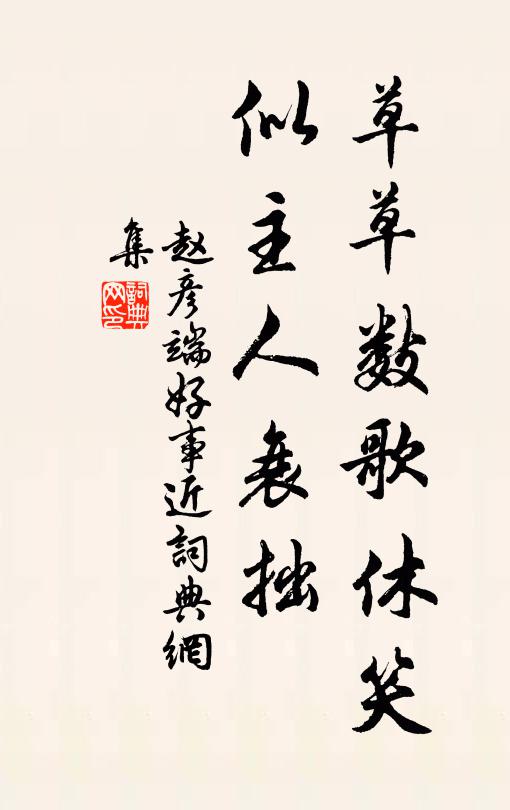 草草数歌休笑
似主人衰拙
赵彦端好事近詞典網
集
詞典
网印